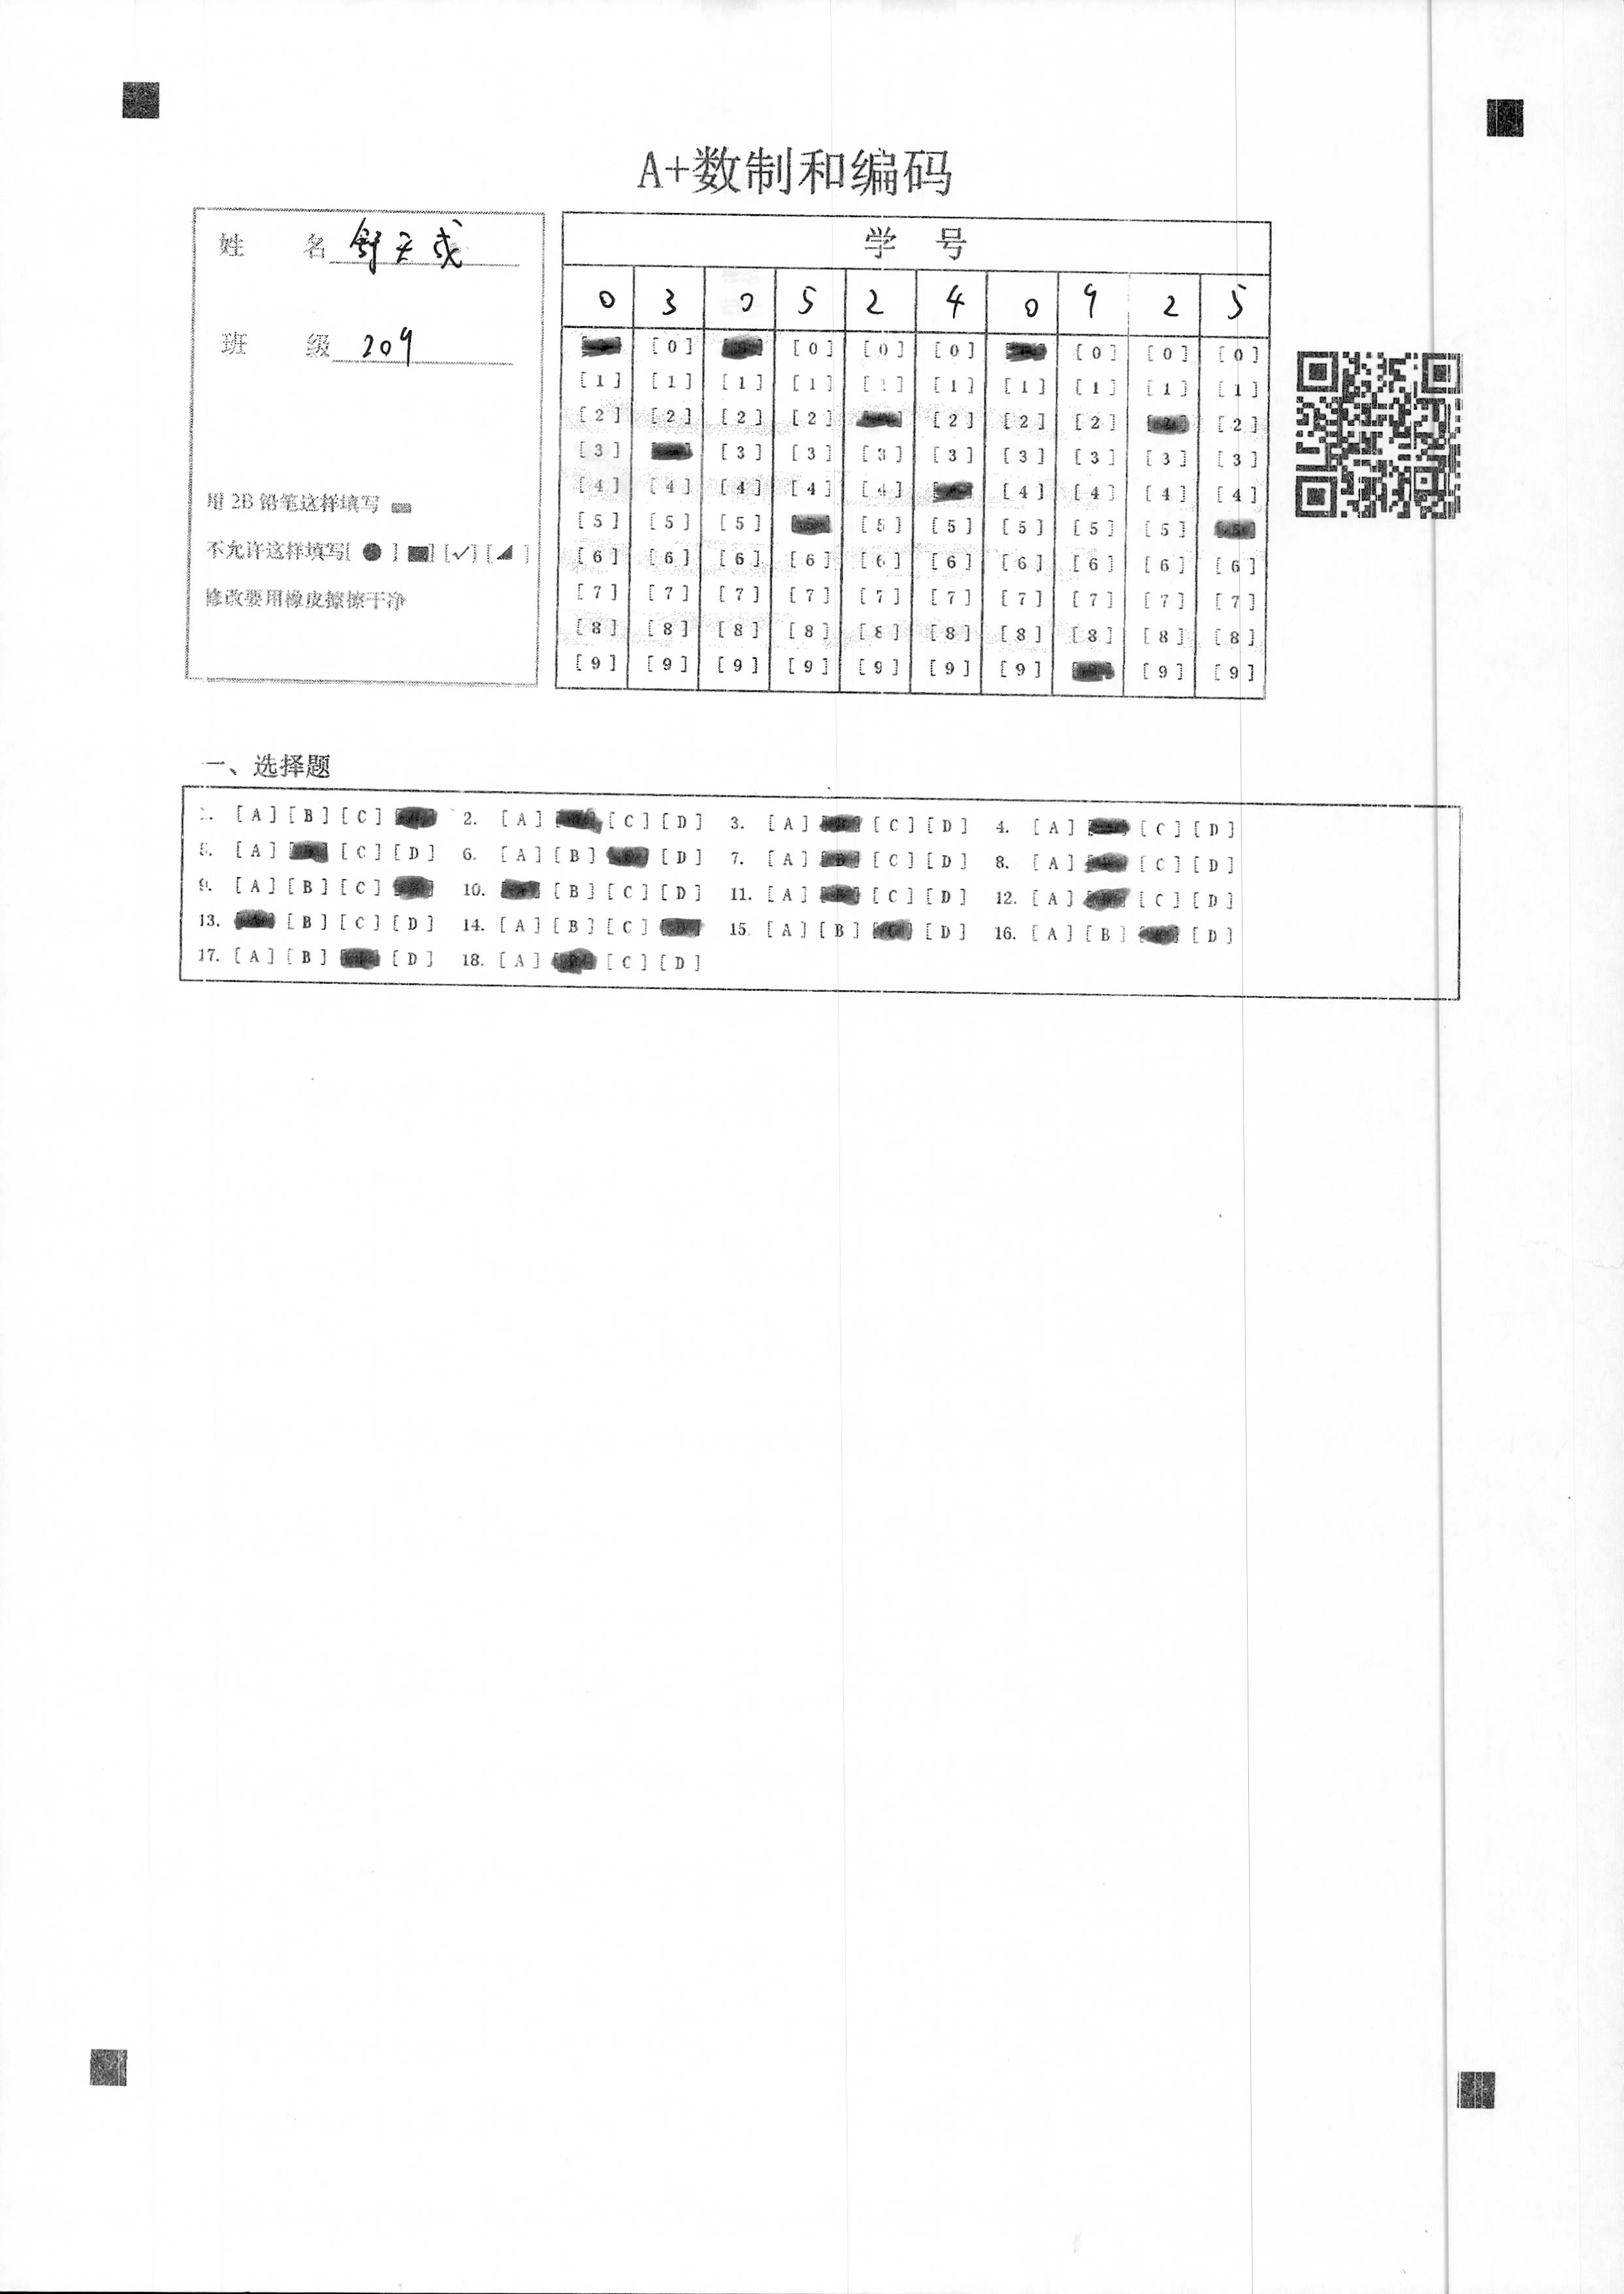 A+数制和编码
姓 名 舒天戎
班 级 209
用 2B 铅笔这样填写
不允许这样填写[ ● ] [■] [✓] [◢ ]
修改要用橡皮擦擦干净
学 号
0 3 0 5 2 4 0 9 2 5
[0] [0] [0] [0] [0] [0] [0]
[1] [1] [1] [1] [1] [1] [1] [1] [1] [1]
[2] [2] [2] [2] [2] [2] [2] [2]
[3] [3] [3] [3] [3] [3] [3] [3] [3]
[4] [4] [4] [4] [4] [4] [4] [4] [4]
[5] [5] [5] [5] [5] [5] [5] [5]
[6] [6] [6] [6] [6] [6] [6] [6] [6] [6]
[7] [7] [7] [7] [7] [7] [7] [7] [7] [7]
[8] [8] [8] [8] [8] [8] [8] [8] [8] [8]
[9] [9] [9] [9] [9] [9] [9] [9] [9]
一、选择题
1. [A] [B] [C] 2. [A] [C] [D] 3. [A] [C] [D] 4. [A] [C] [D]
5. [A] [C] [D] 6. [A] [B] [D] 7. [A] [C] [D] 8. [A] [C] [D]
9. [A] [B] [C] 10. [B] [C] [D] 11. [A] [C] [D] 12. [A] [C] [D]
13. [B] [C] [D] 14. [A] [B] [C] 15. [A] [B] [D] 16. [A] [B] [D]
17. [A] [B] [D] 18. [A] [C] [D]